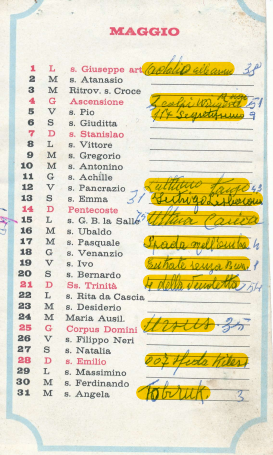 MAGGIO
1 L s. Giuseppe art 38
2 M s. Atanasio
3 M Ritrov. s. Croce
4 G Ascensione 51
5 V s. Pio 117 Segretissimo 9
6 S s. Giuditta
7 D s. Stanislao
8 L s. Vittore
9 M s. Gregorio
10 M s. Antonino
11 G s. Achille
12 V s. Pancrazio L'ultimo Tango 43
13 S s. Emma 31
14 D Pentecoste
15 L s. G. B. la Salle 75 Ultima Carica
16 M s. Ubaldo
17 M s. Pasquale Spada nell'ombra 4
18 G s. Venanzio
19 V s. Ivo senza 1
20 S s. Bernardo
21 D Ss. Trinità 4 della Vendetta 54
22 L s. Rita da Cascia
23 M s. Desiderio
24 M Maria Ausil.
25 G Corpus Domini Ursus 35
26 V s. Filippo Neri
27 S s. Natalia
28 D s. Emilio 007
29 L s. Massimino
30 M s. Ferdinando
31 M s. Angela Tobruk 3